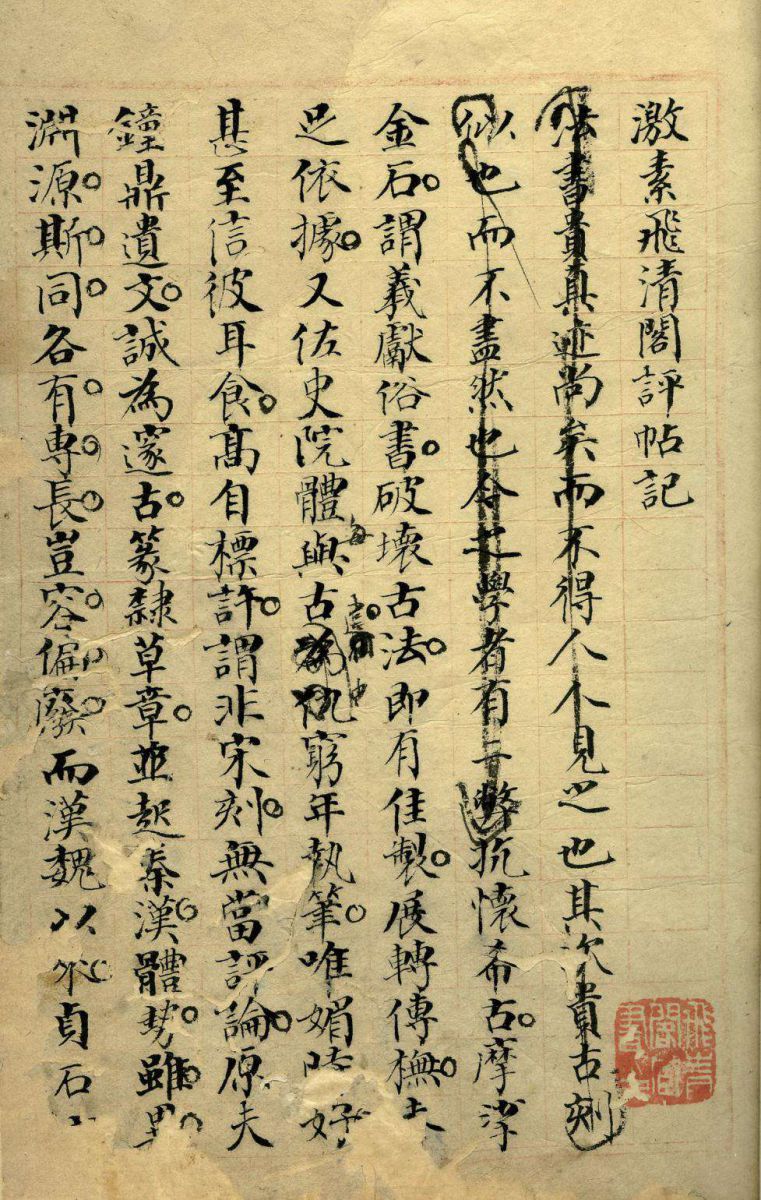 激素飛清閣評帖記
法書貴真迹尚矣而不得人人見之也其次貴古刻
似也而不盡然也今之學者有二弊抗懷希古摩挲
金石謂羲獻俗書破壞古法即有佳製展轉傳橅
足依據又佐史院體與古為仇窮年執筆唯媚時好
甚至信彼耳食高自標許謂非宋刻無當評論原夫
鐘鼎遺文誠為邃古篆隸草章並起秦漢體勢雖異
淵源斯同各有專長豈容偏廢而漢魏以來貞石